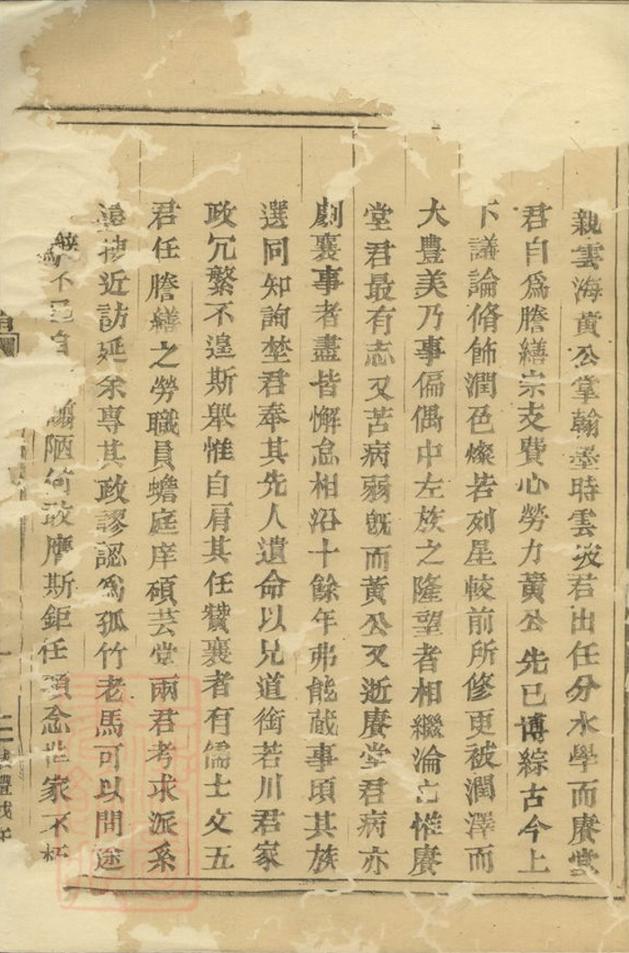 親雲海黃公掌翰墨時雲坡君出任分水學而賡堂
君自爲謄繕宗支費心勞力黃公先已博綜古今上
下議論脩飾潤色燦若列星較前所修更被潤澤而
大豊美乃事偏偶中左族之隆望者相繼淪亡惟賡
堂君最有志又苦病弱旣而黃公又逝賡堂君病亦
劇襄事者盡皆懈怠相沿十餘年弗能蕆事頃其族
選同知詢埜君奉其先人遺命以兄道銜若川君家
政冗繁不遑斯舉惟自肩其任贊襄者有儒士文五
君任謄繕之勞職員蟾庭庠碩芸堂兩君考求派系
遠搜近訪延余專其政謬認爲孤竹老馬可以問途
不 自 陋何敢膺斯鉅任顧念世家不朽